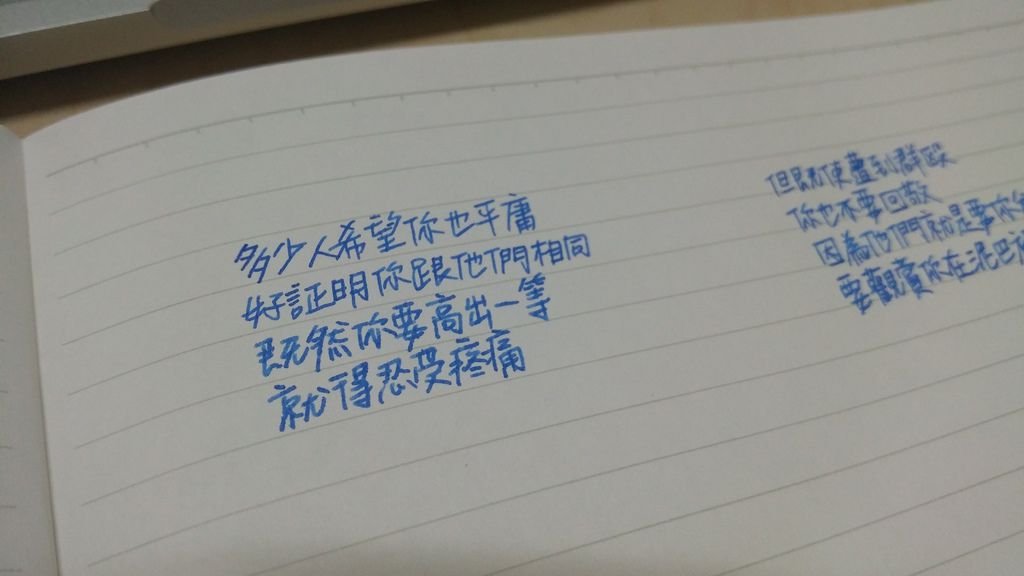 多少人希望你也平庸
好証明你跟他們相同
既然你要高出一等
就得忍受疼痛
但即使遭到群毆
你也不要回敬
因為他們就是要你
要觀賞你在泥巴